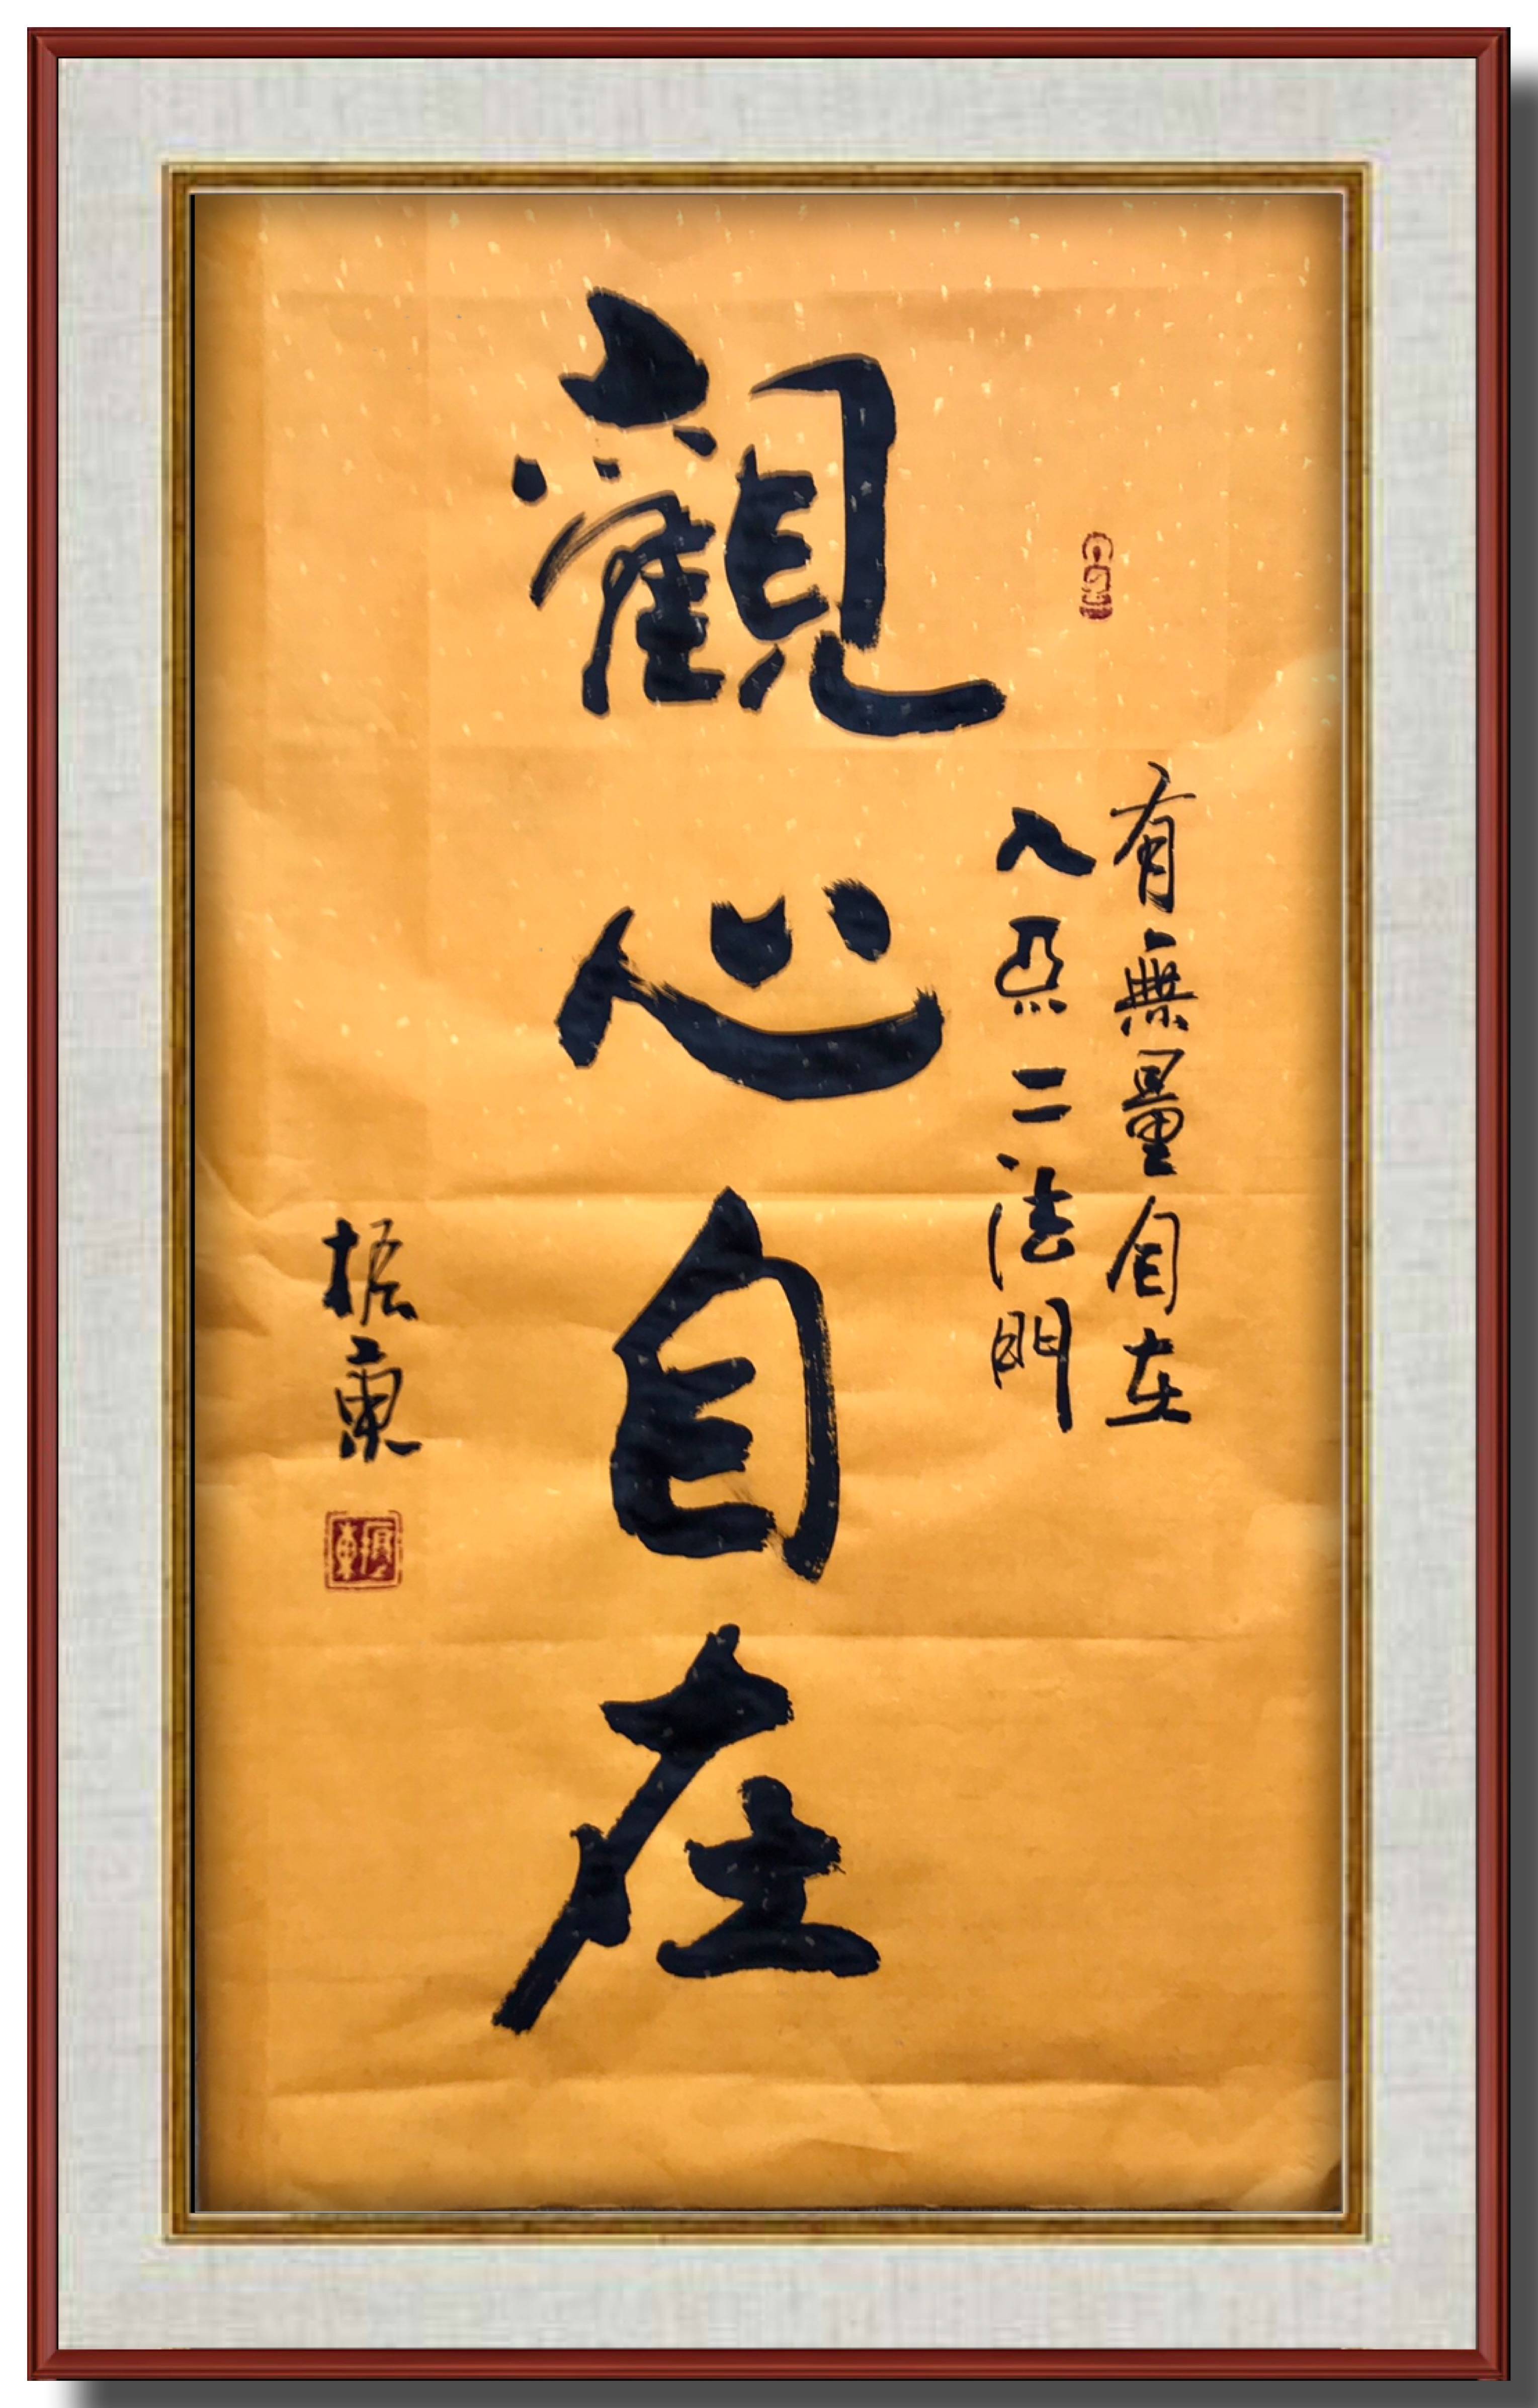 有無量自在
入不二法門
觀心自在
振東